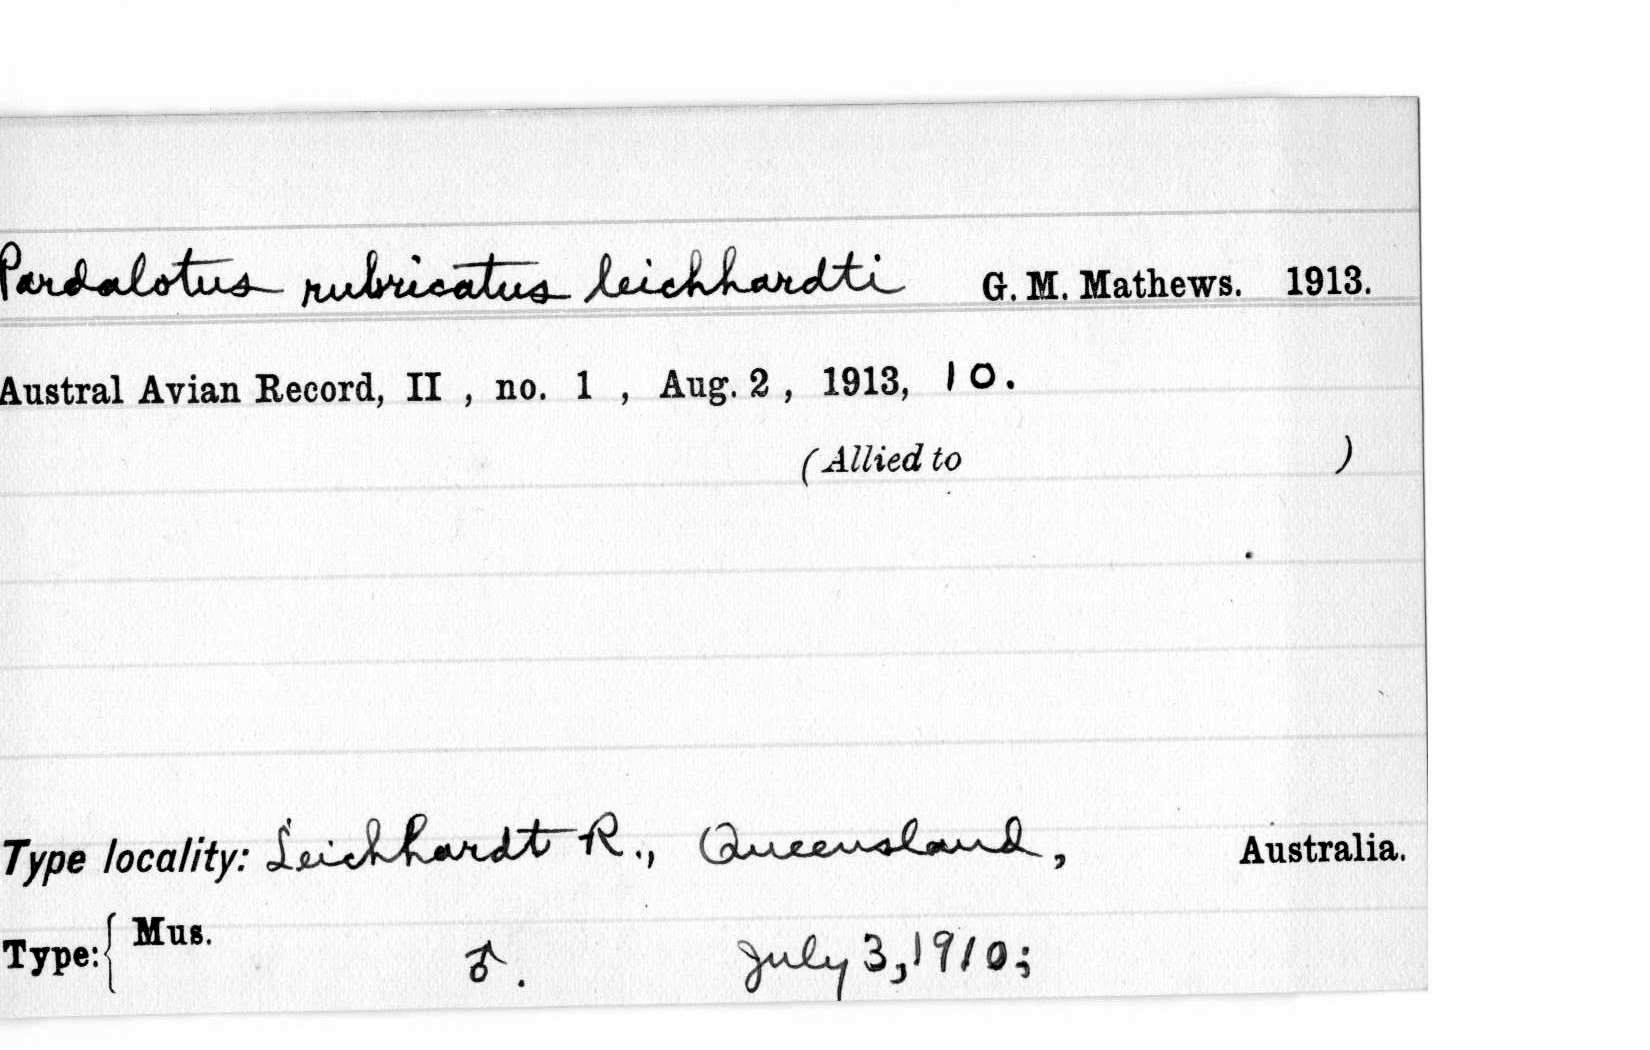 Pardalotus rubricatus leichhardti G. M. Mathews. 1913.
Austral Avian Record, II , no. 1 , Aug. 2 , 1913, 10.
(Allied to )
Type locality: Leichhardt R., Queensland, Australia.
Type: { Mus. ♂. July 3, 1910;